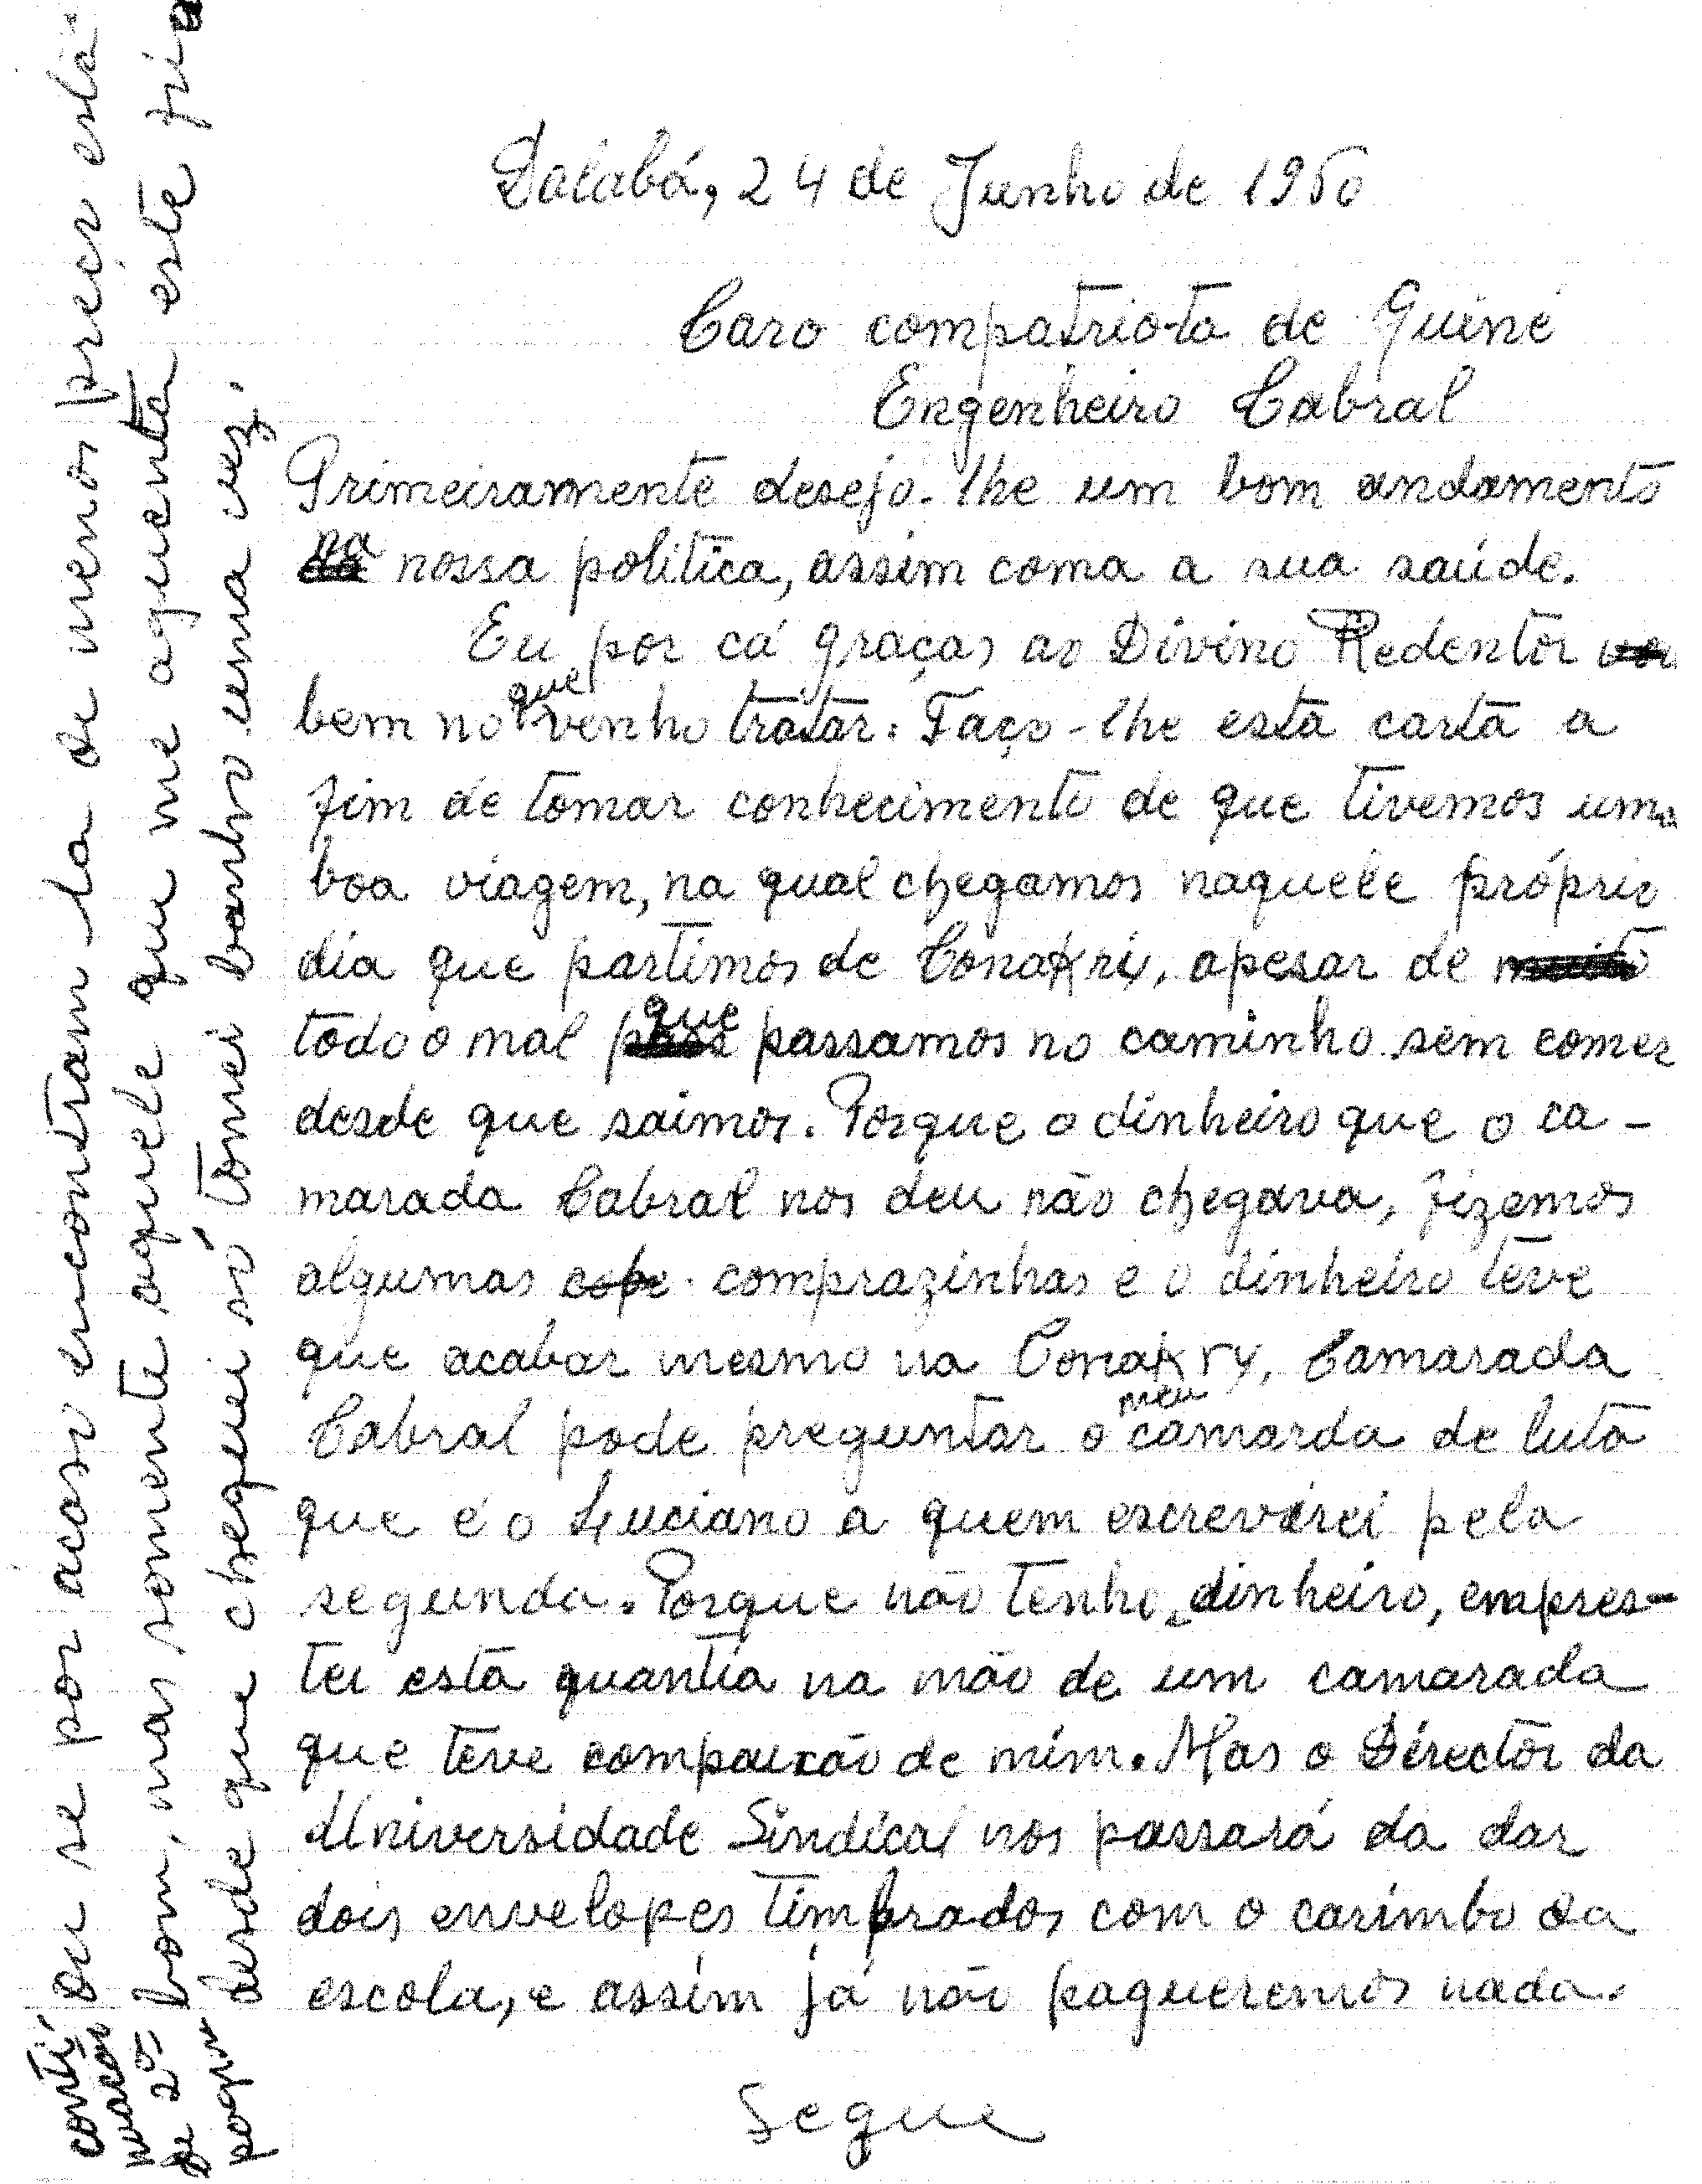 Dalabá, 24 de Junho de 1960
Caro compatriota de Guiné
Engenheiro Cabral
Primeiramente desejo-lhe um bom andamento
na nossa politica, assim coma a sua saúde.
Eu por cá graças ao Divino Redentor vou
bem no que venho tratar: Faço-lhe esta carta a
fim de tomar conhecimento de que tivemos uma
boa viagem, na qual chegamos naquele próprio
dia que partimos de Conakri, apesar de muito
todo o mal que passamos no caminho sem comer
desde que saimos. Porque o dinheiro que o ca-
marada Cabral nos deu não chegava, fizemos
algumas cope comprazinhas e o dinheiro teve
que acabar mesmo na Conakry, Camarada
Cabral pode preguntar o meu camarda de luta
que é o Luciano a quem escreverei pela
segunda. Porque não tenho dinheiro, empres-
tei esta quantia na mão de um camarada
que teve compaixão de mim. Mas o Director da
Universidade Sindical nos passará da dar
dois envelopes timbrados com o carimbo da
escola, e assim já não pagueremos nada.
Segue
conti
nuacão
de 2ª
pagina
ou se por acaso encontram-la de menos preço está
bom, mas somente aquele que me aguenta este frio
desde que cheguei só tomei banho uma vez.